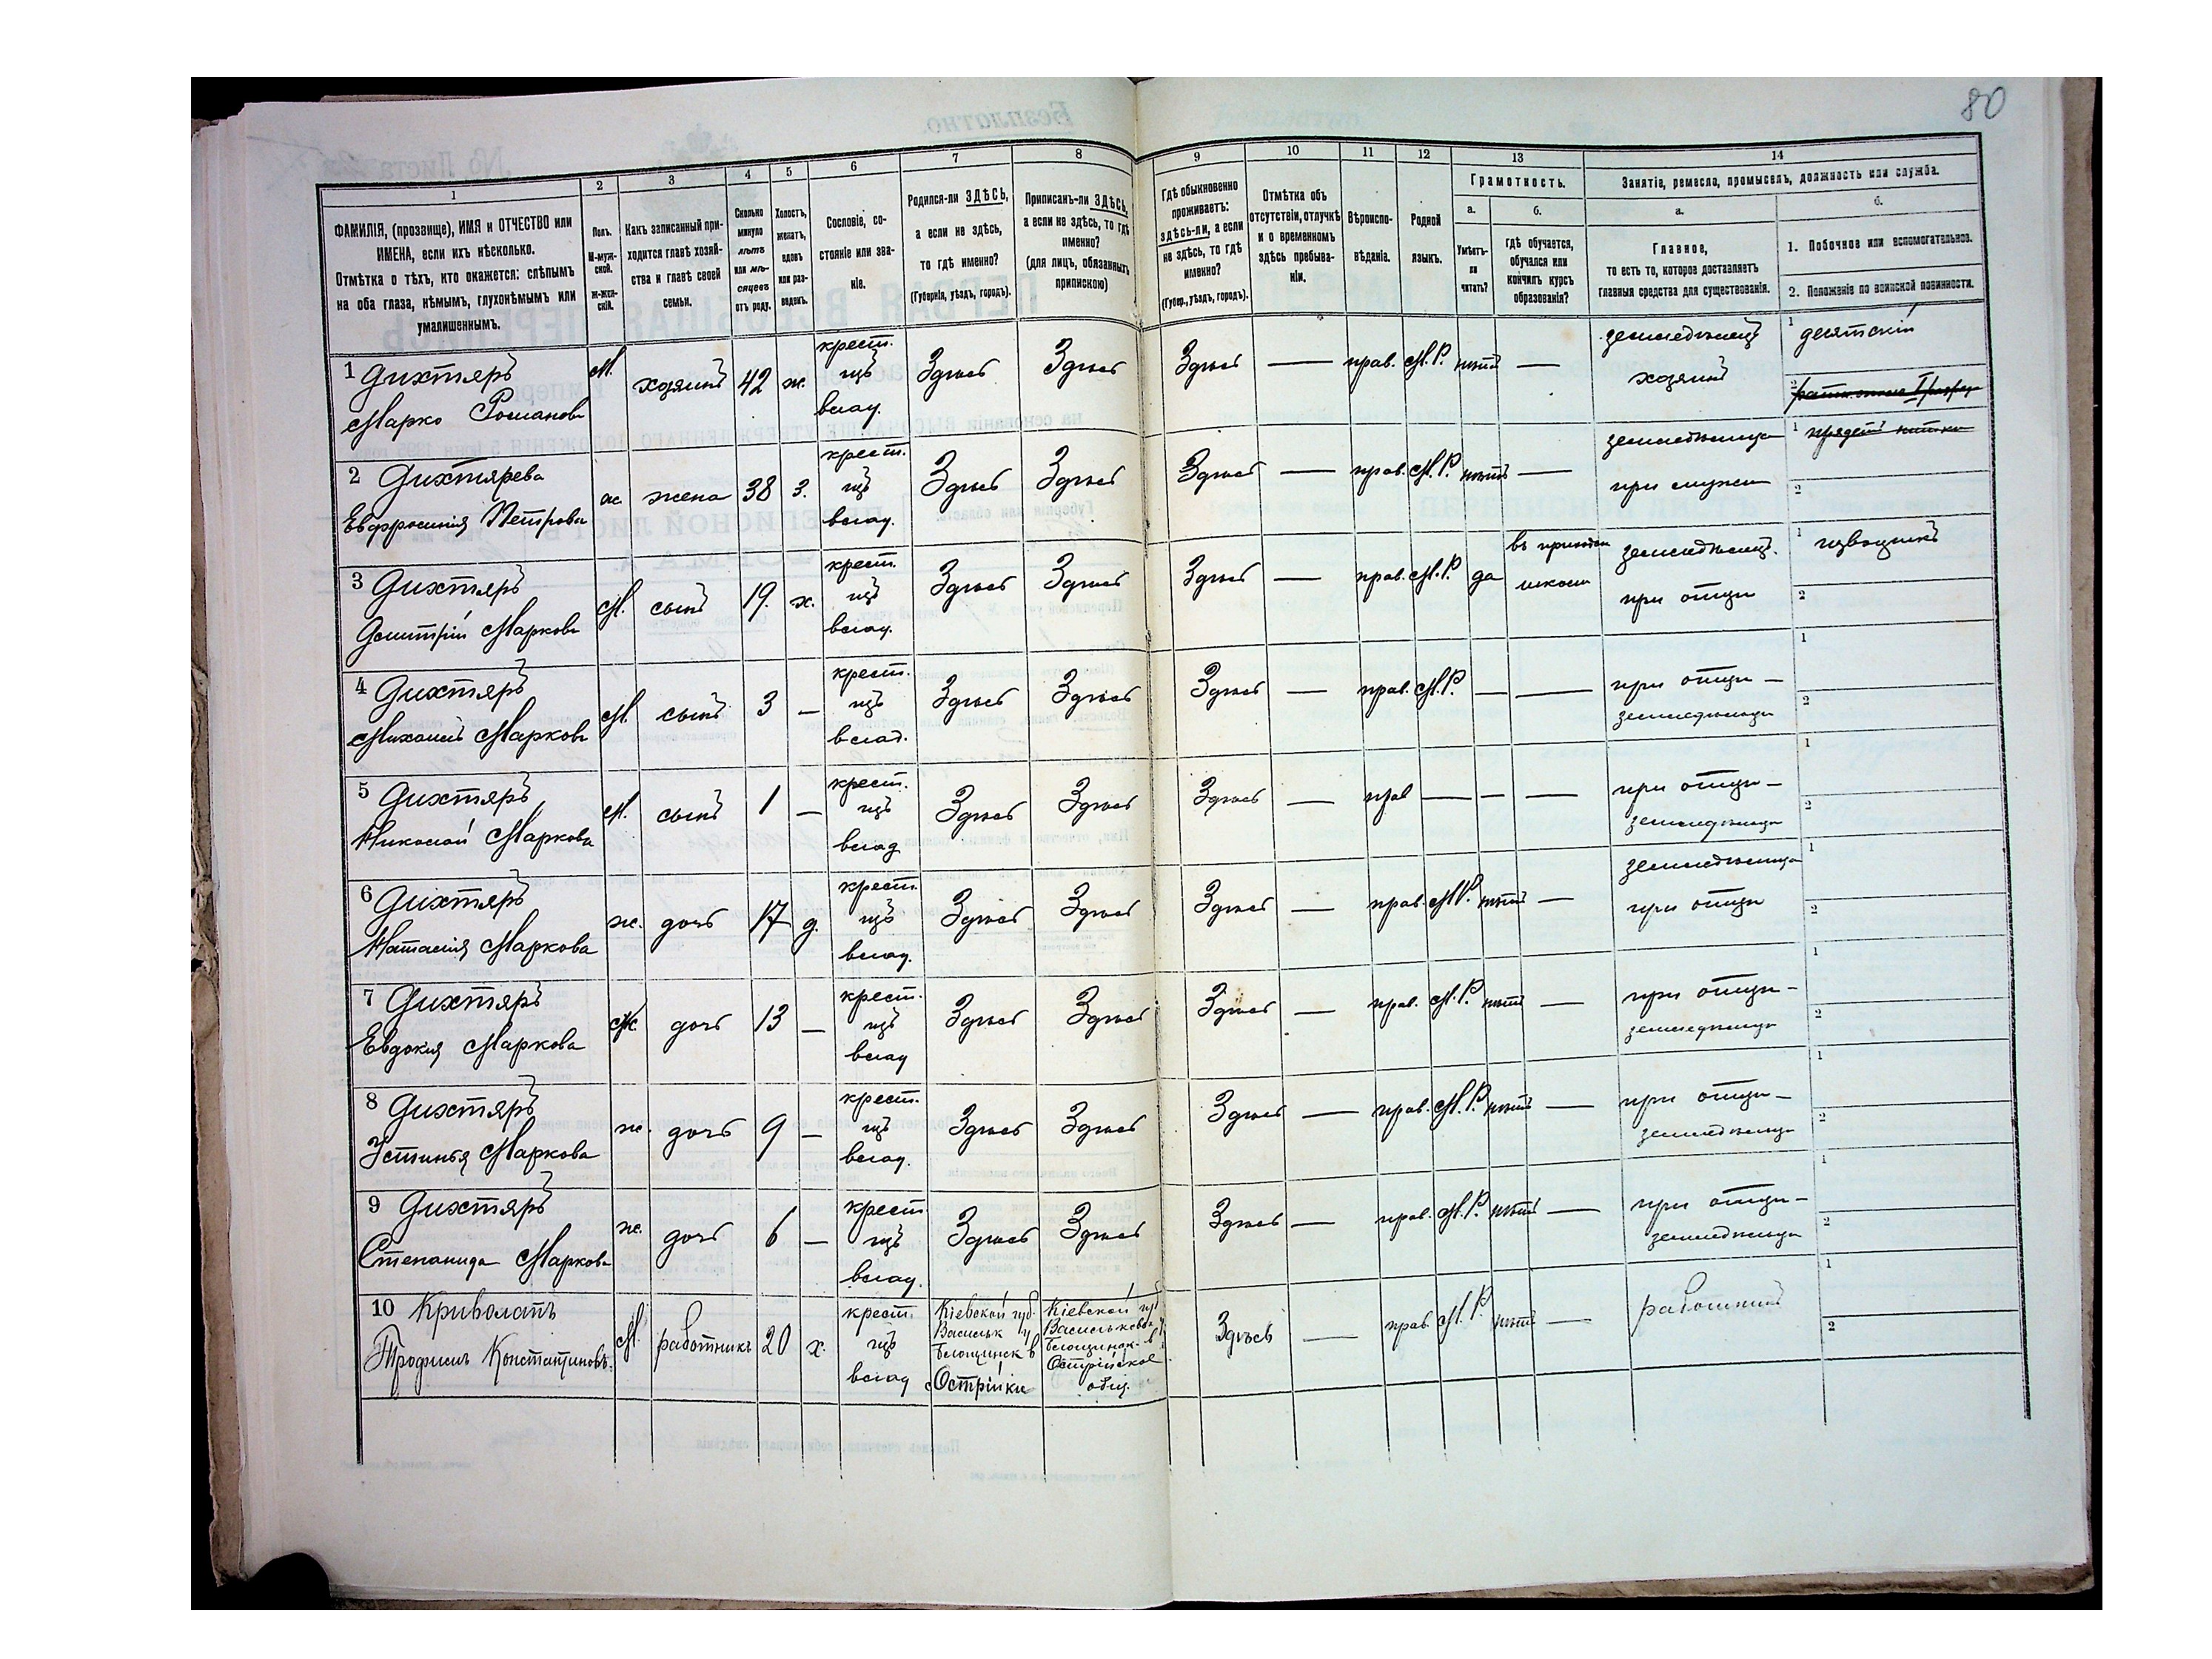 80
1 2 3 4 5 6 7 8 9 10 11 12 13 14
ФАМИЛІЯ, (прозвище), ИМЯ и ОТЧЕСТВО или
ИМЕНА, если ихъ нѣсколько.
Отмѣтка о тѣхъ, кто окажется: слѣпымъ
на оба глаза, нѣмымъ, глухонѣмымъ или
умалишеннымъ.
Полъ.
М-муж-
ской.
Ж-жен-
скій.
Какъ записанный при-
ходится главѣ хозяй-
ства и главѣ своей
семьи.
Сколько
минуло
лѣтъ
или мѣ-
сяцевъ
отъ роду.
Холостъ,
женатъ,
вдовъ
или раз-
веденъ.
Сословіе, со-
стояніе или зва-
ніе.
Родился-ли ЗДѢСЬ,
а если не здѣсь,
то гдѣ именно?
(Губернія, уѣздъ, городъ).
Приписанъ-ли ЗДѢСЬ,
а если не здѣсь, то гдѣ
именно?
(для лицъ, обязанныхъ
припискою)
Гдѣ обыкновенно
проживаетъ:
здѣсь-ли, а если
не здѣсь, то гдѣ
именно?
(Губер., уѣздъ, городъ).
Отмѣтка объ
отсутствіи, отлучкѣ
и о временномъ
здѣсь пребыва-
ніи.
Вѣроиспо-
вѣданіе.
Родной
языкъ.
Грамотность.
а.
Умѣетъ-
ли
читать?
б.
гдѣ обучается,
обучался или
кончилъ курсъ
образованія?
Занятіе, ремесло, промыселъ, должность или служба.
а.
Главное,
то есть то, которое доставляетъ
главныя средства для существованія.
б.
1. Побочное или вспомогательное.
2. Положеніе по воинской повинности.
1 Дихтяръ
Марко Романовъ
М. хозяинъ 42 ж. крест.
изъ
влад.
Здѣсь Здѣсь Здѣсь — прав. М.Р. нѣтъ —
земледѣлецъ
хозяинъ
1 десятскій
2
2 Дихтярева
Евфросинія Петрова
ж. жена 38 з. крест.
изъ
влад.
Здѣсь Здѣсь Здѣсь — прав. М.Р. нѣтъ —
земледѣлица
при мужи
1 прядетъ нитки
2
3 Дихтяръ
Дмитрій Марковъ
М. сынъ 19. х. крест.
изъ
влад.
Здѣсь Здѣсь Здѣсь — прав. М.Р. да
въ приходск
школи
земледѣлецъ.
при отци
1 извощикъ
2
4 Дихтяръ
Михаилъ Марковъ
М. сынъ 3 — крест.
изъ
влад.
Здѣсь Здѣсь Здѣсь — прав. М.Р. — —
при отци —
земледѣльци
1
2
5 Дихтяръ
Николай Маркова
М. сынъ 1 — крест.
изъ
влад
Здѣсь Здѣсь Здѣсь — прав — — —
при отци —
земледѣльци
1
2
6 Дихтяръ
Наталія Маркова
ж. дочь 17 д. крест.
изъ
влад.
Здѣсь Здѣсь Здѣсь — прав. М.Р. нѣтъ —
земледѣлица
при отци
1
2
7 Дихтяръ
Евдокия Маркова
Ж дочь 13 — крест.
изъ
влад
Здѣсь Здѣсь Здѣсь — прав. М.Р. нѣтъ —
при отци —
земледѣльци
1
2
8 Дихтяръ
Устинья Маркова
ж. дочь 9 — крест.
изъ
влад.
Здѣсь Здѣсь Здѣсь — прав. М.Р. нѣтъ —
при отци —
земледѣльци
1
2
9 Дихтяръ
Степанида Маркова
ж. дочь 6 — крест
изъ
влад.
Здѣсь Здѣсь Здѣсь — прав. М.Р. нѣтъ —
при отци —
земледѣльци
1
2
10 Криволапъ
Трофимъ Константиновъ.
М. работникъ 20 х. крест.
изъ
влад
Кіевской губ.
Васильк у
Остріики
Кіевской губ
Остріиское
общ.
Здѣсь — прав. М.Р. нѣтъ —
работникъ
1
2